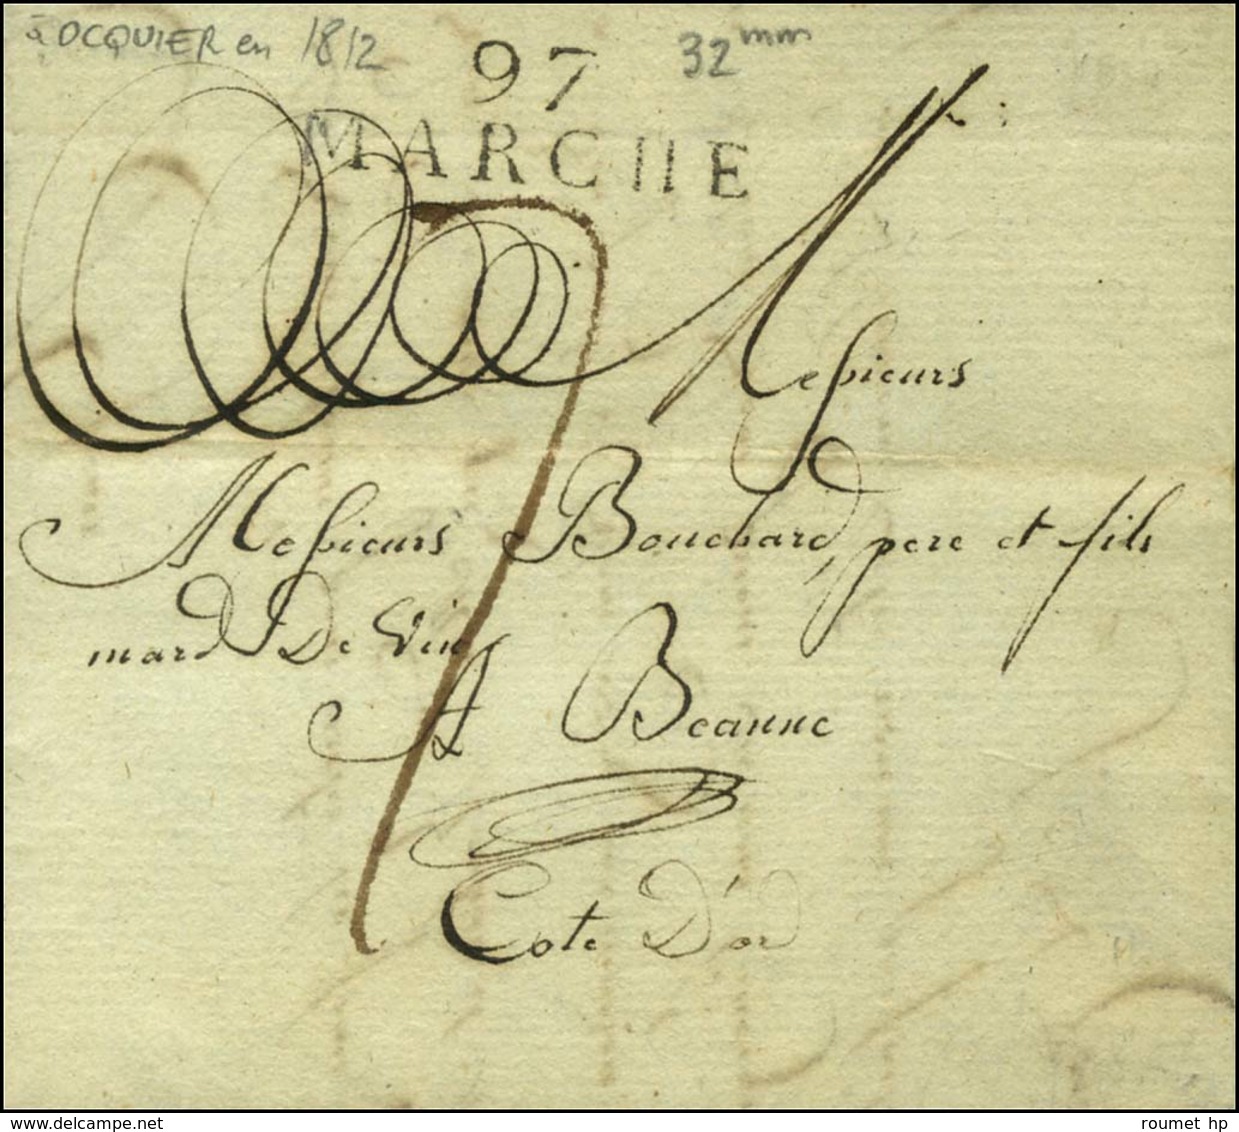 OCQUIER en 1812
32 mm
97
MARCHE
Messieurs
Messieurs Bouchard, pere et fils
mard De Vin
A Beaune
Cote D'or
www.delcampe.net
roumet hp